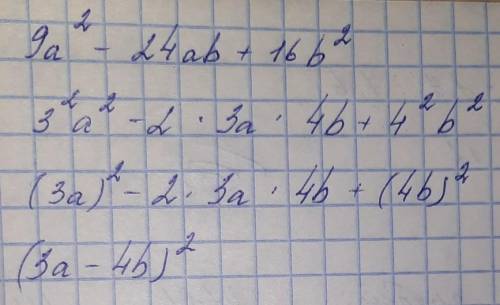 9a² - 24ab + 16b²
3²a² - 2 · 3a · 4b + 4²b²
(3a)² - 2 · 3a · 4b + (4b)²
(3a - 4b)²